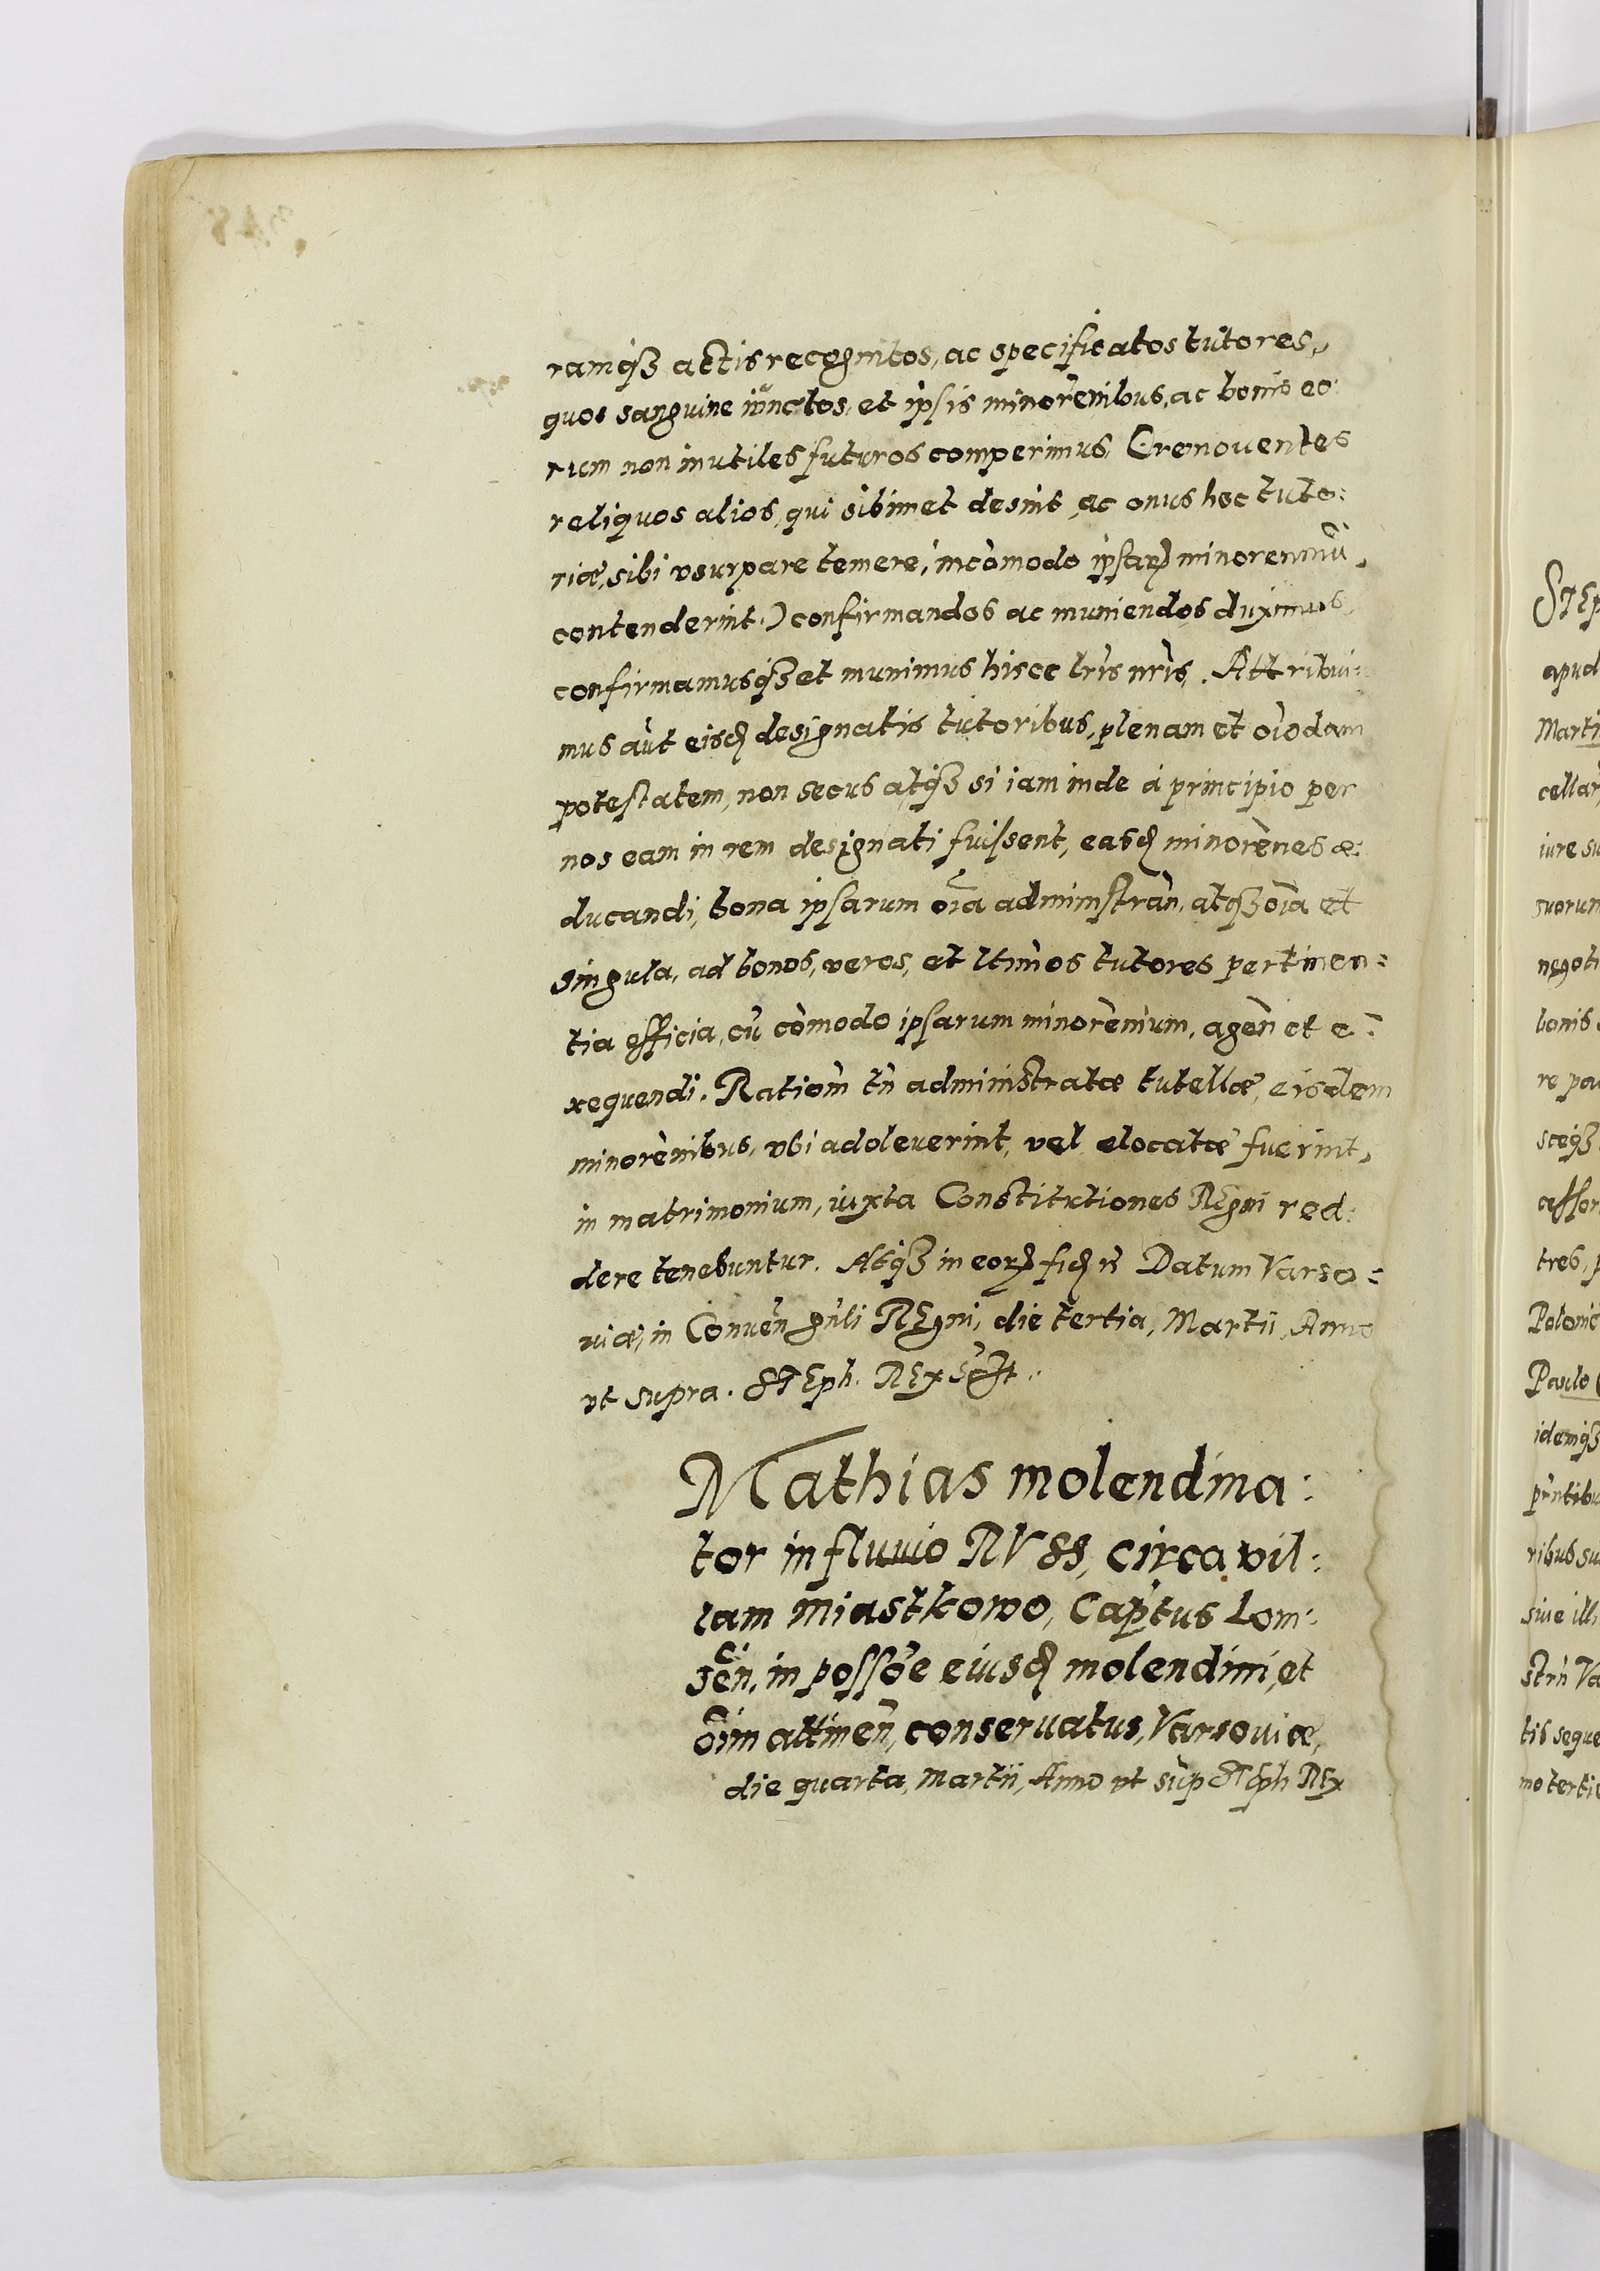 ramqꝫ actis recognitos, ac specificatos tutores,
quos sanguine iūnctos, et ipsis minorēnibus, ac bonis eo:
rum non inutiles futuros comperimus, (remouentes
reliquos alios, qui sibimet desint, ac onus hoc tuto:
riæ, sibi vsurpare temerè, incōmodo ipsaꝝ minorenniū,
contenderint.) confirmandos ac muniendos duximus,
confirmamusqꝫ et munimus hisce lr̄is nr̄is. Attribui:
mus aūt eisd designatis tutoribus, plenam et oīodam
potestatem, non secus atqꝫ si iam inde à principio per
nos eam in rem designati fuissent, easd minorēnes æ:
ducandi, bona ipsarum oīa adminstrān, atqꝫ oīa et
singula, ad bonos, veros, et ltīmos tutores pertinen:
tia officia, cū cōmodo ipsarum minorēnium, agēn et e:
xequendi. Ratiōm tn̄ administratæ tutellæ, eisdem
minorēnibus, vbi adoleuerint, vel elocatæ fuerint,
in matrimonium, iuxta Constitutiones REgni red:
dere tenebuntur. Atqꝫ in eoꝝ fid Datum Varso:
uiæ, in Conuēn gn̄li REgni, die tertia, Martii, Anno
vt supra. STEph. REx
Mathias molendina:
tor in fluuio RVSS, circa vil:
lam Miastkowo, Cap̄tus Lom:
zēn, in possōe eiusd molendini, et
oīm attinēn, conseruatus, Varsouiæ,
die quarta, Martii, Anno vt sup̄ STEph REx
STEp
apud
Marti
cellar
iure su
suorum
negoti
bonis
re pa
sceqꝫ
assor
tres, p
Polonie
Paulo
idemqꝫ
pr̄ntibu
ribus su
siue illi
strn̄ Va
tis seque
mo tertio